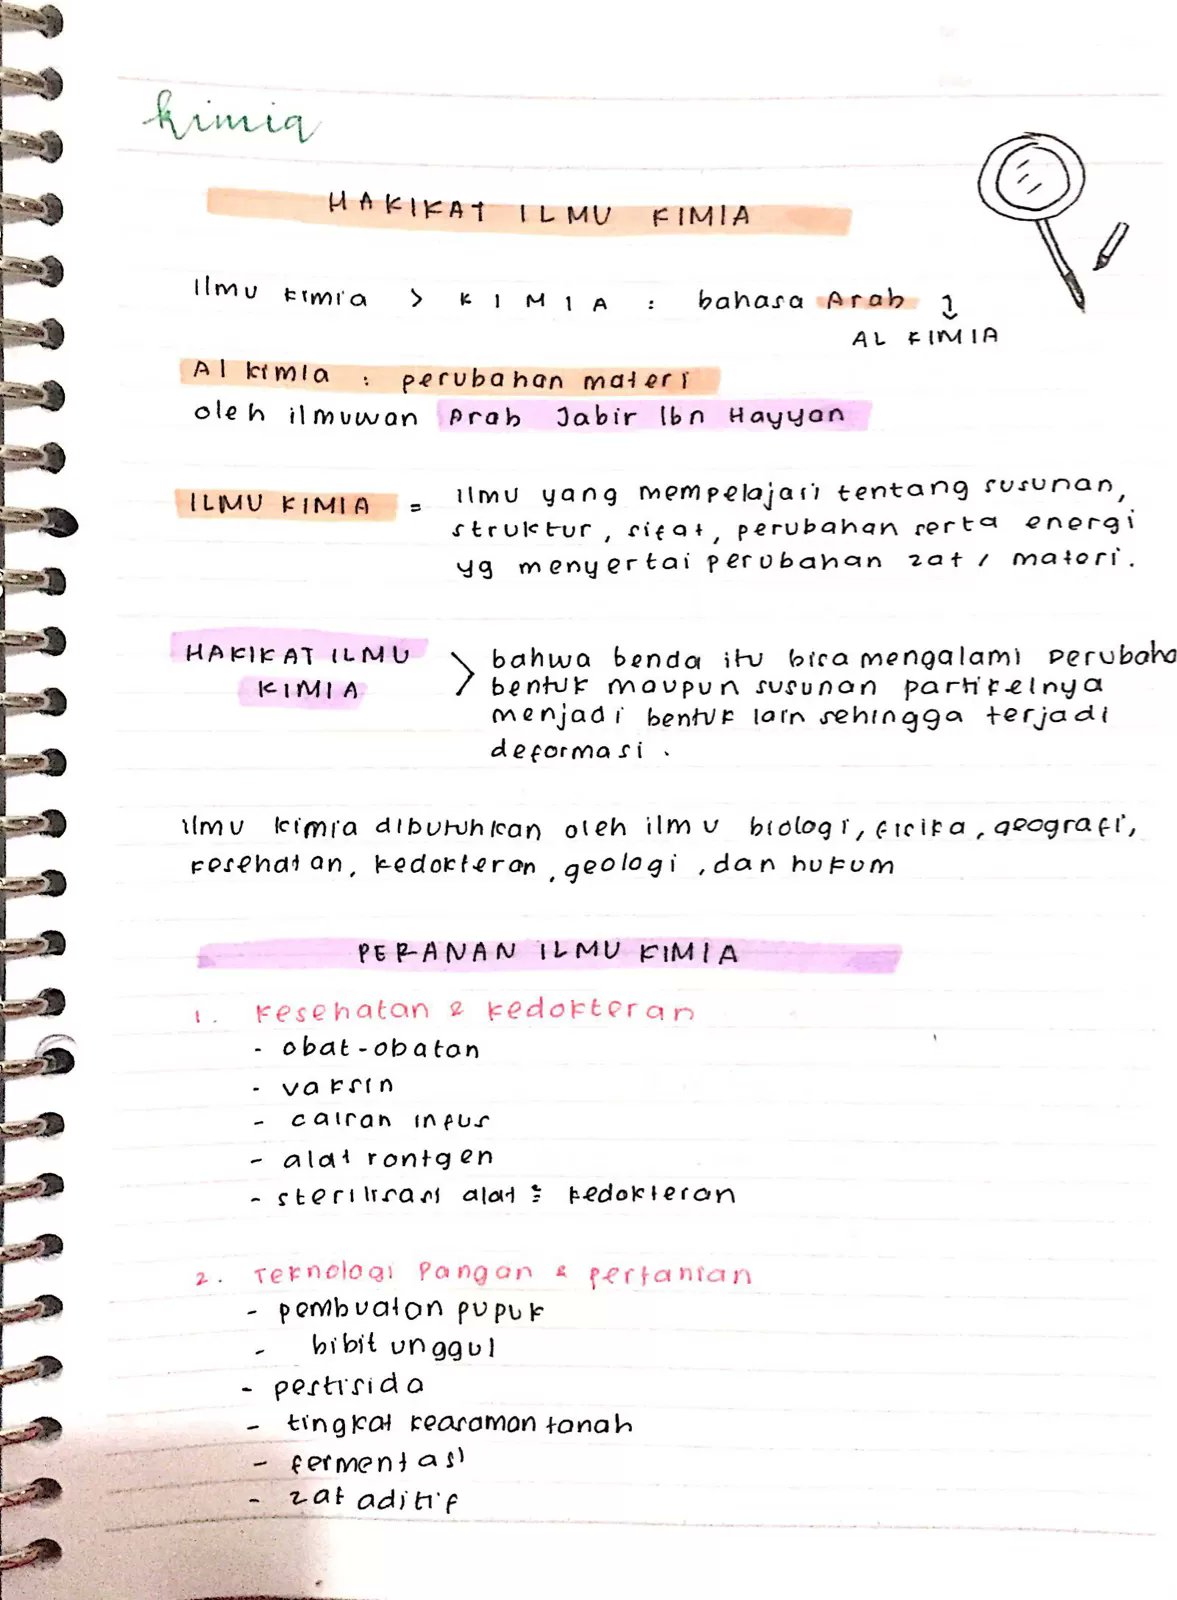 kimia
HAKIKAT ILMU KIMIA
Ilmu kimia > KIMIA : bahasa Arab
AL KIMIA
Al kimia : perubahan materi
oleh ilmuwan Arab Jabir Ibn Hayyan
ILMU KIMIA = Ilmu yang mempelajari tentang susunan,
struktur, sifat, perubahan serta energi
yg menyertai perubahan zat / materi.
HAKIKAT ILMU > bahwa benda itu bisa mengalami perubaha
KIMIA bentuk maupun susunan partikelnya
menjadi bentuk lain sehingga terjadi
deformasi.
ilmu kimia dibutuhkan oleh ilmu biologi, fisika, geografi,
kesehatan, kedokteran, geologi, dan hukum
PERANAN ILMU KIMIA
1. Kesehatan & kedokteran
- obat-obatan
- vaksin
- cairan infus
- alat rontgen
- sterilisasi alat² kedokteran
2. Teknologi Pangan & pertanian
- pembuatan pupuk
- bibit unggul
- pestisida
- tingkat keasaman tanah
- fermentasi
- zat aditif